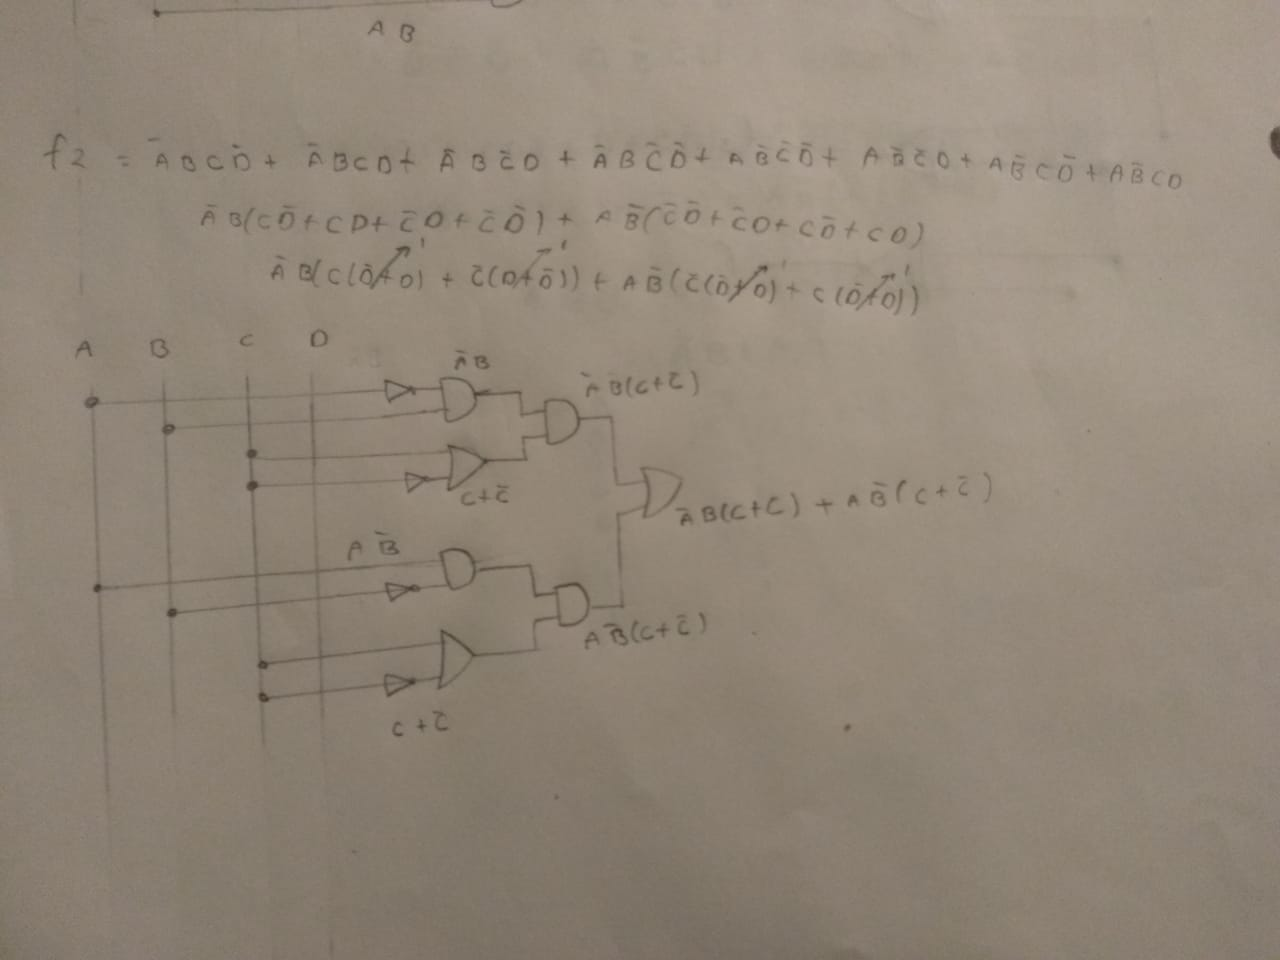 A B
f2 = ĀBCD̄ + ĀBCD + ĀBC̄D + ĀBC̄D̄ + AB̄C̄D̄ + AB̄C̄D + AB̄CD̄ + AB̄CD
ĀB(CD̄ + CD + C̄D + C̄D̄) + AB̄(C̄D̄ + C̄D + CD̄ + CD)
1 1 1 1
ĀB(C(D̄+D) + C̄(D+D̄)) + AB̄(C̄(D̄+D) + C(D̄+D))
A B C D
ĀB
ĀB(C+C̄)
C+C̄
ĀB(C+C) + AB̄(C+C̄)
AB̄
AB̄(C+C̄)
C+C̄